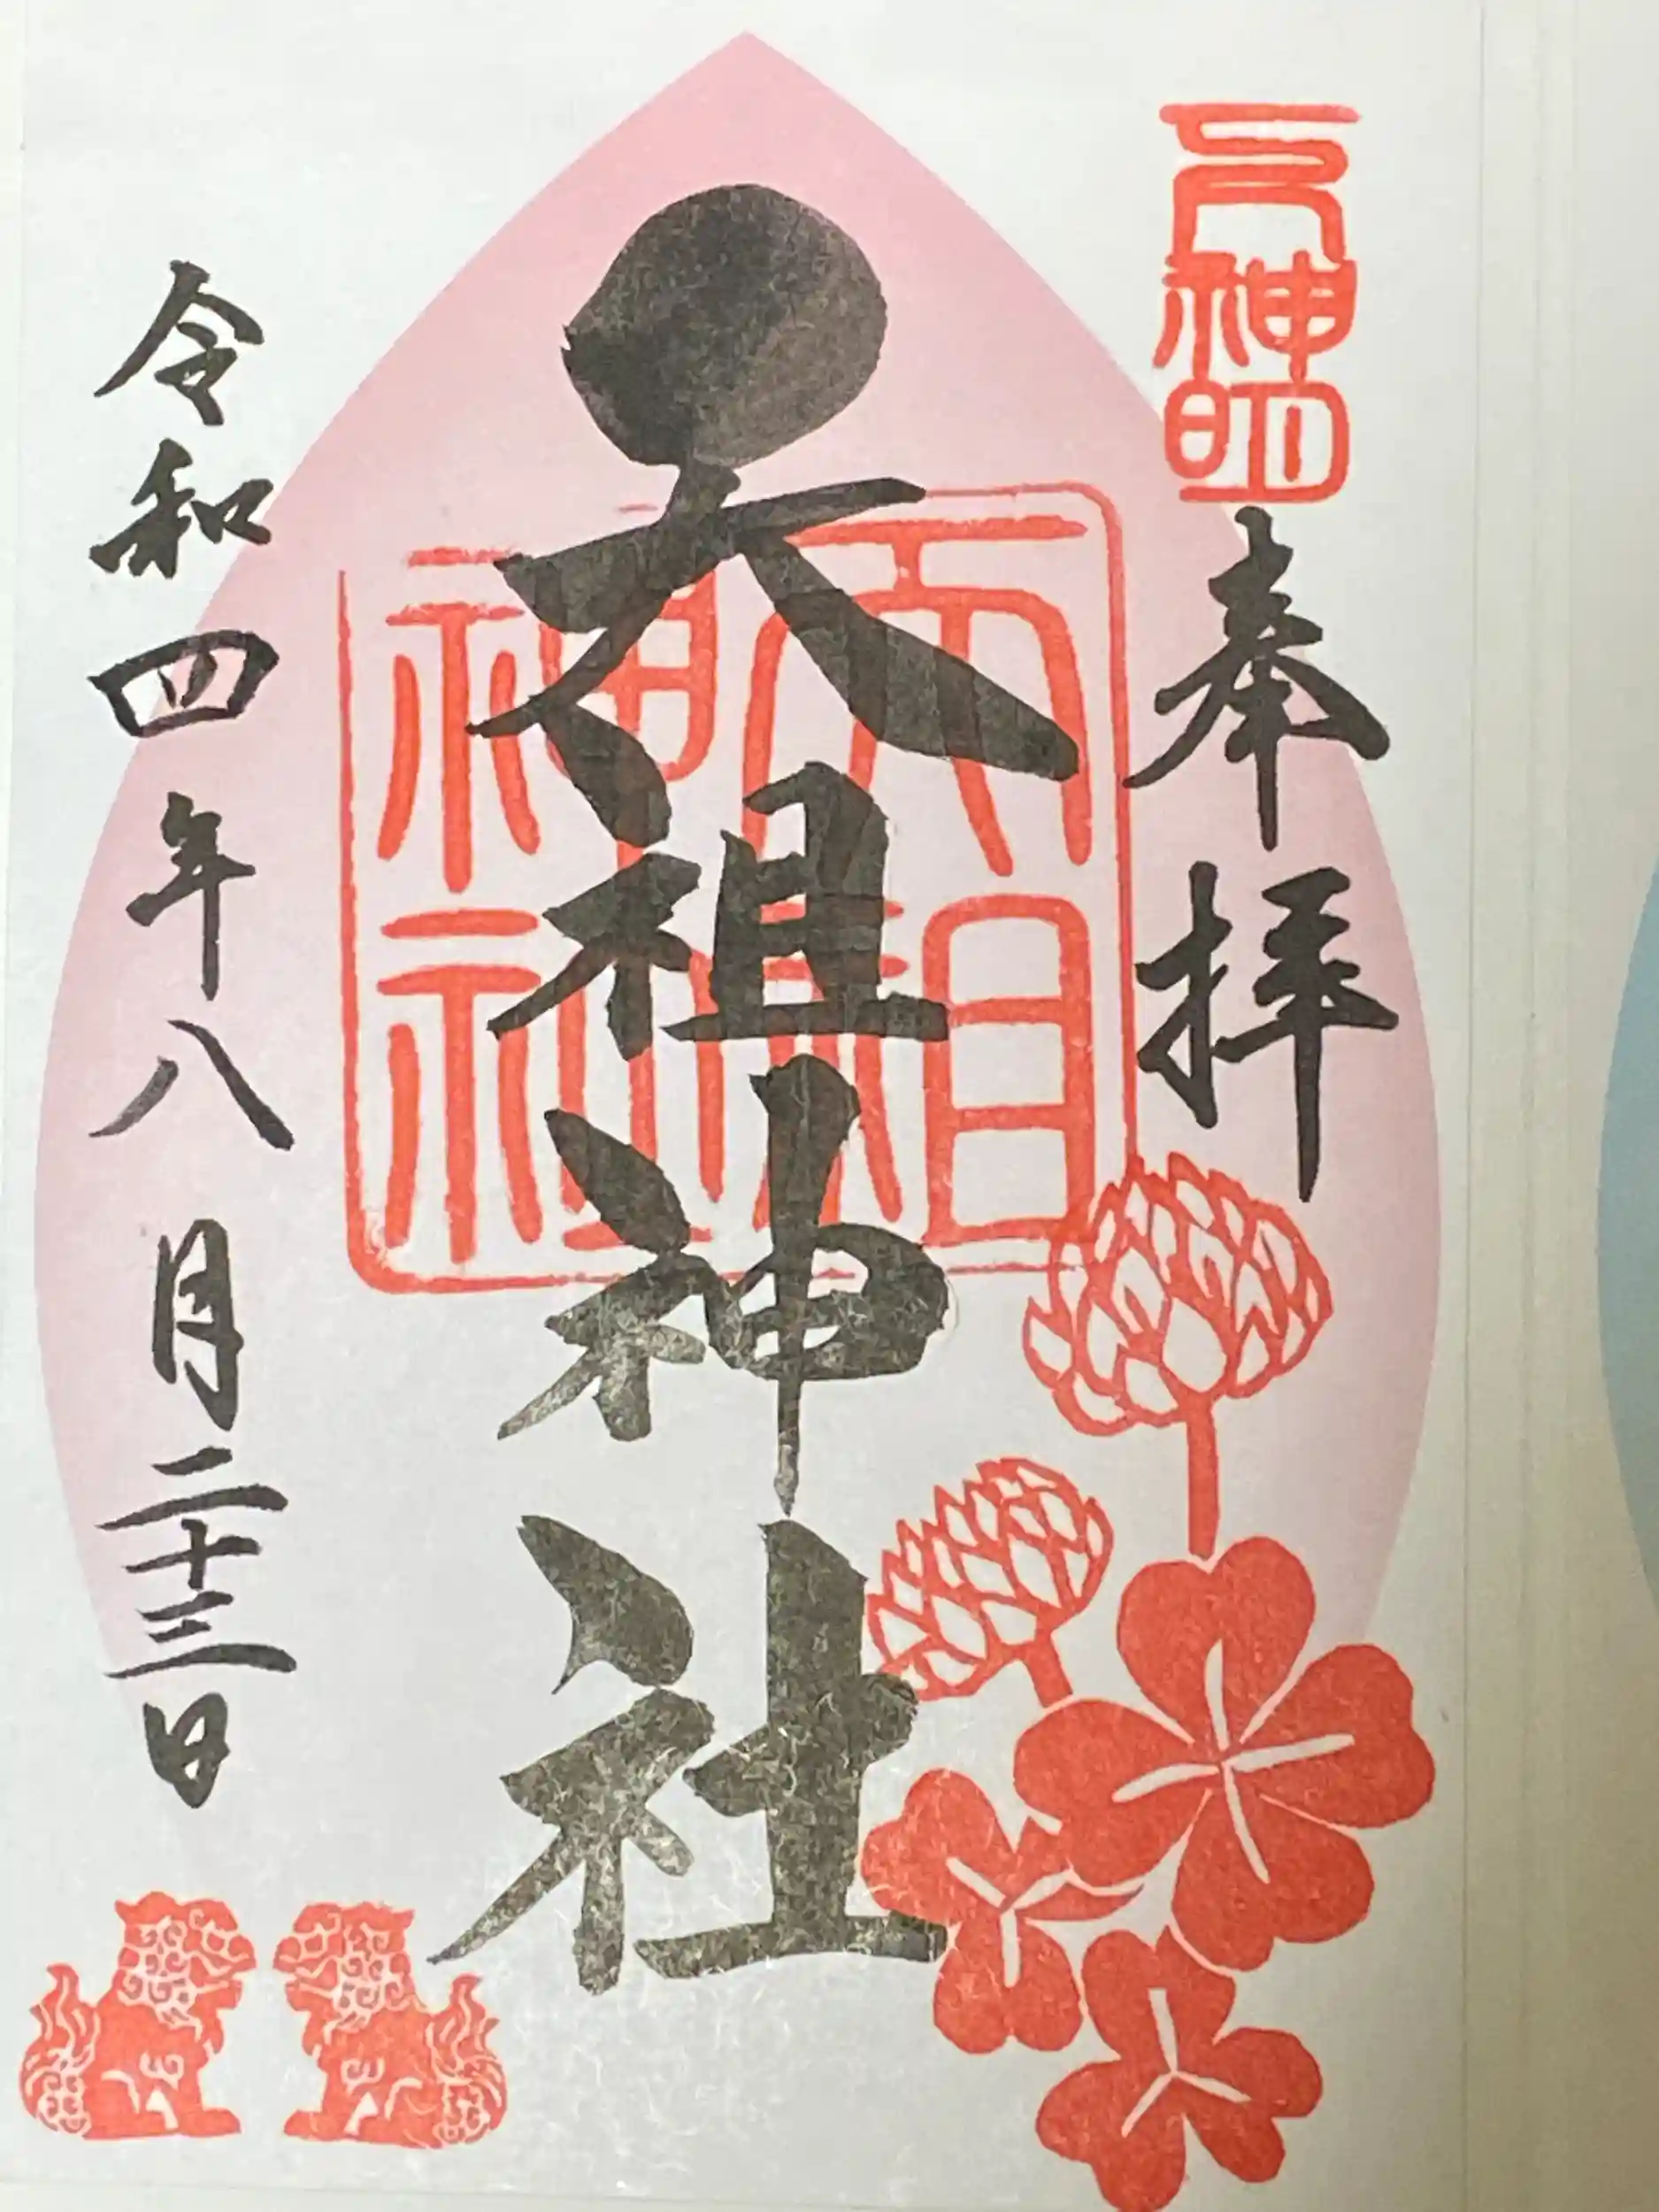 下神明
奉拝
天祖神社
天祖神社
令和四年八月二十三日